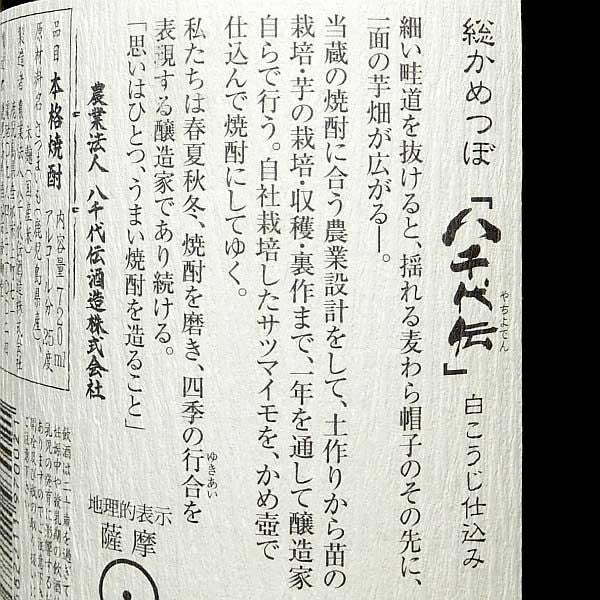 総かめつぼ「八千代伝」白こうじ仕込み
やちよでん
細い畦道を抜けると、揺れる麦わら帽子のその先に、
一面の芋畑が広がる―。
当蔵の焼酎に合う農業設計をして、土作りから苗の
栽培・芋の栽培・収穫・裏作まで、一年を通して醸造家
自らで行う。自社栽培したサツマイモを、かめ壺で
仕込んで焼酎にしてゆく。
私たちは春夏秋冬、焼酎を磨き、四季の行合を
ゆきあい
表現する醸造家であり続ける。
「思いはひとつ、うまい焼酎を造ること」
農業法人 八千代伝酒造株式会社
地理的表示
薩摩
品目 本格焼酎 内容量720ml
原材料名 さつまいも(鹿児島県産)、
アルコール分 25度